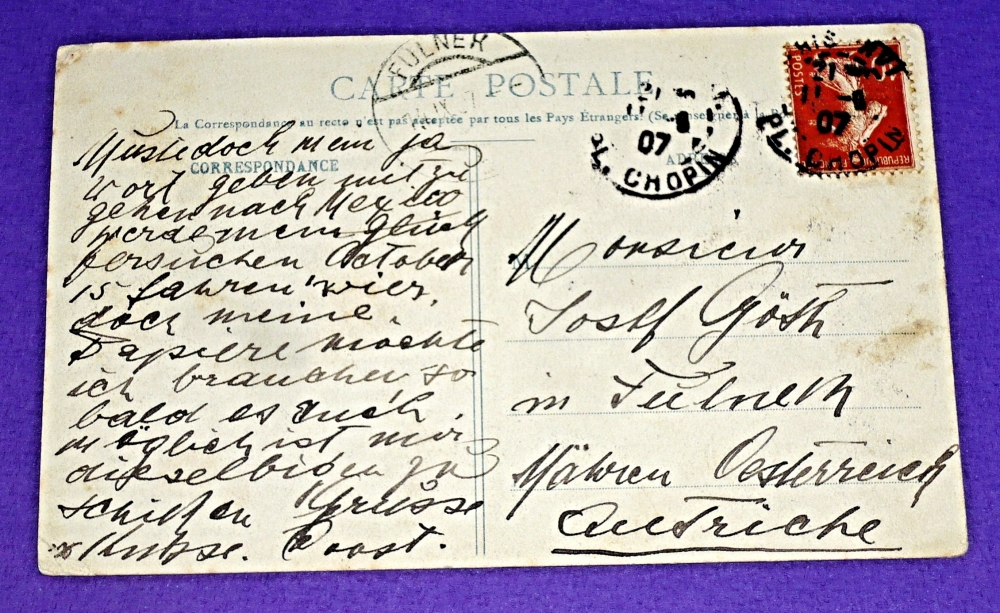 FULNEK
CARTE POSTALE
La Correspondance au recto n'est pas acceptée par tous les Pays Étrangers. (Se renseigner à la
CORRESPONDANCE
Muste doch mein ja
wort geben mit zu
gehen nach Mexico
werde mein glück
fersuchen October
15 fahren wier,
doch meine
Papiere möchte
ich brauchen so
bald es euch
möglich ist mir
dieselbigen zu
schiffen Grüsse
Kusse.
07
PL. CHOPIN
POSTES
11 -8
07
PL. CHOPIN
Monsieur
Josef Göth
in Fulnek
Mähren Oesterreich
Autriche